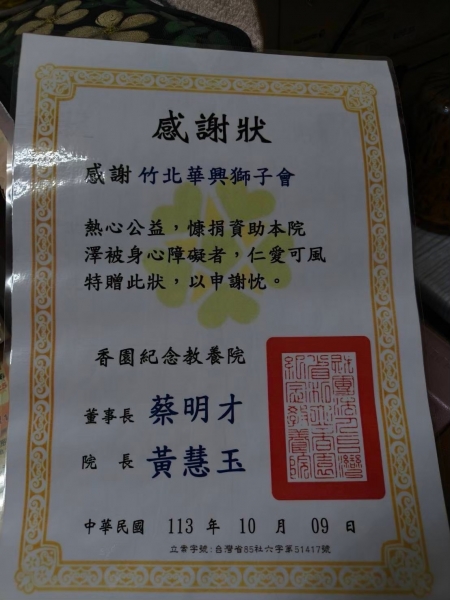 感謝狀
感謝 竹北華興獅子會
熱心公益，慷捐資助本院
澤被身心障礙者，仁愛可風
特贈此狀，以申謝忱。
香園紀念教養院
董事長 蔡明才
院 長 黃慧玉
中華民國 113 年 10 月 09 日
立案字號：台灣省85社六字第51417號